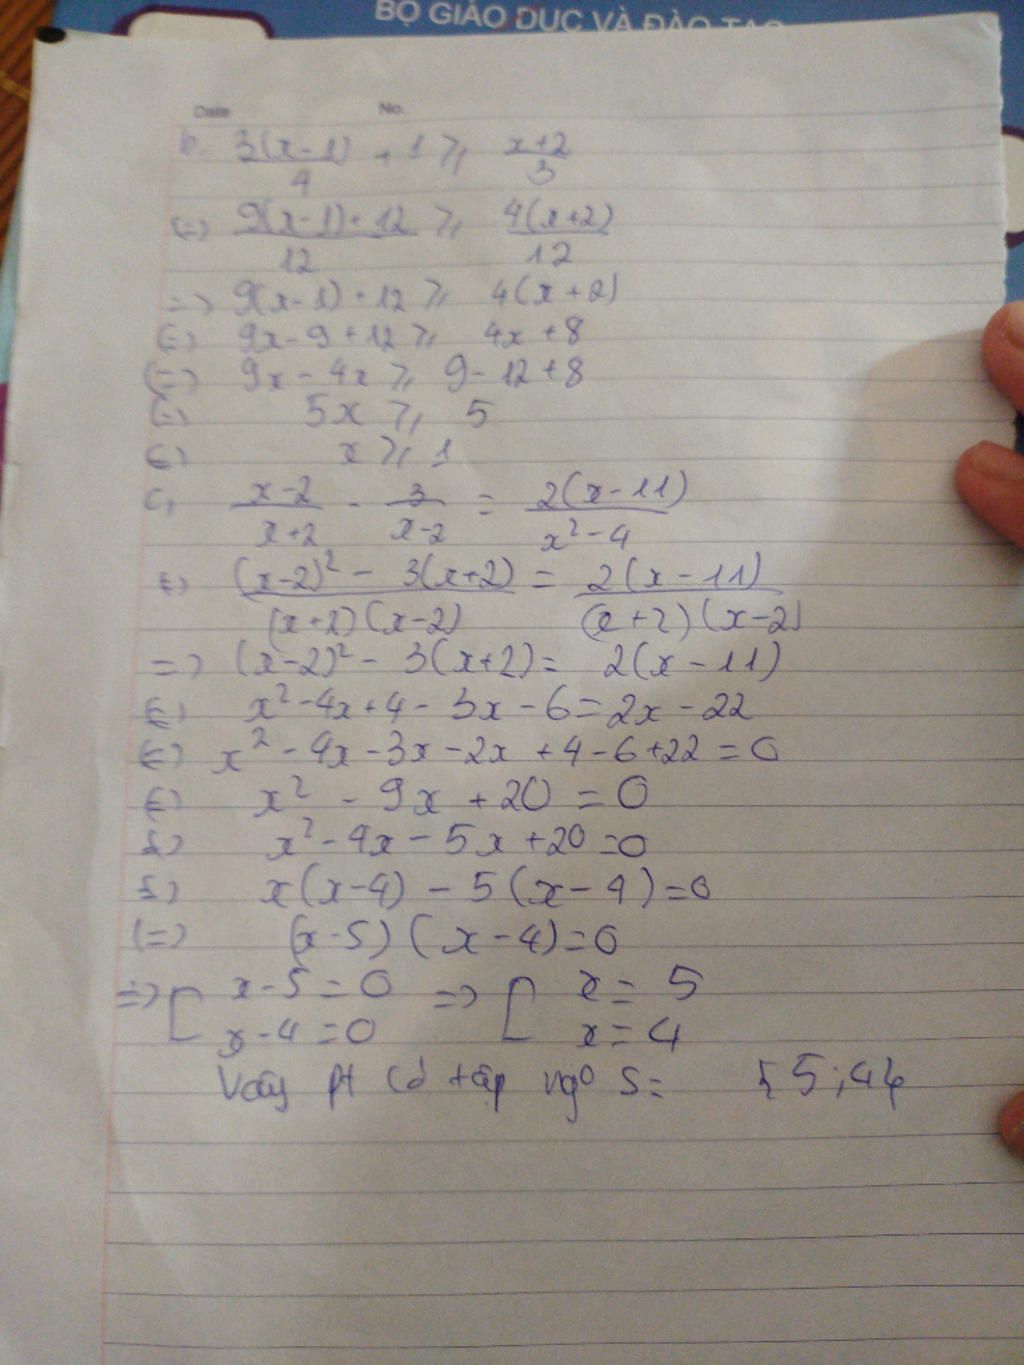 BỘ GIÁO DỤC VÀ ĐÀO TẠO
Date No.
b. 3(x-1)/4 + 1 ≥ x+2/3
(=) 9(x-1)+12/12 ≥ 4(x+2)/12
=> 9(x-1)+12 ≥ 4(x+2)
(=) 9x-9+12 ≥ 4x+8
(=) 9x-4x ≥ 9-12+8
(=) 5x ≥ 5
(=) x ≥ 1
c, x-2/x+2 - 3/x-2 = 2(x-11)/x²-4
(=) (x-2)² - 3(x+2)/(x+2)(x-2) = 2(x-11)/(x+2)(x-2)
=> (x-2)² - 3(x+2) = 2(x-11)
(=) x²-4x+4-3x-6=2x-22
(=) x²-4x-3x-2x+4-6+22=0
(=) x²-9x+20=0
(=) x²-4x-5x+20=0
(=) x(x-4)-5(x-4)=0
(=) (x-5)(x-4)=0
=> [ x-5=0 => [ x=5
x-4=0 x=4
Vậy pt có tập ng⁰ S= {5;4}